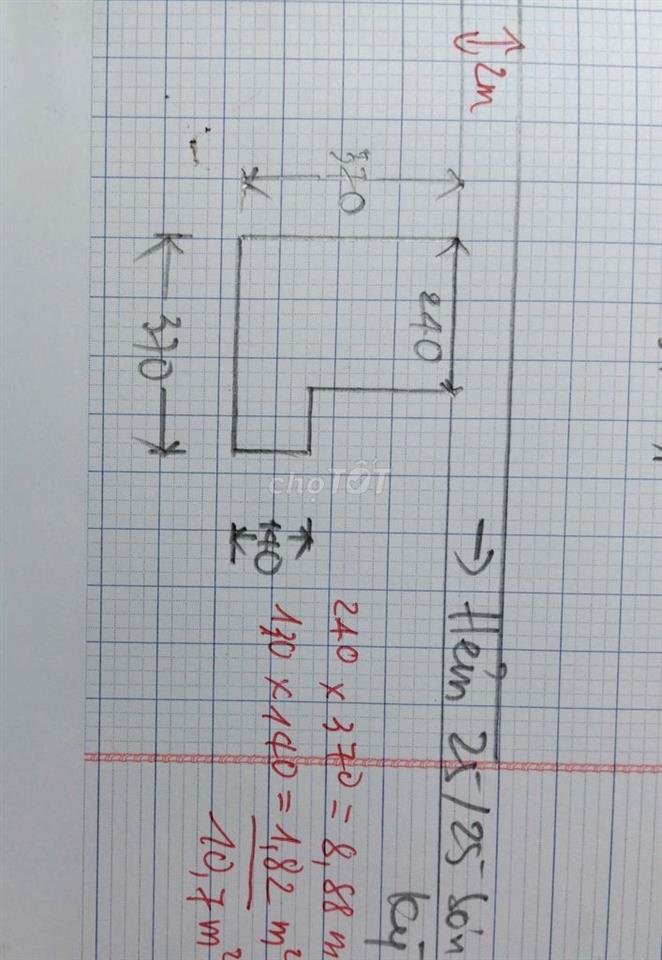 2m
370
240
370
140
→ Hẻm 25/25 Sơn
kỳ
240 x 370 = 8,88 m
130 x 140 = 1,82 m²
10,7 m²
chợTỐT